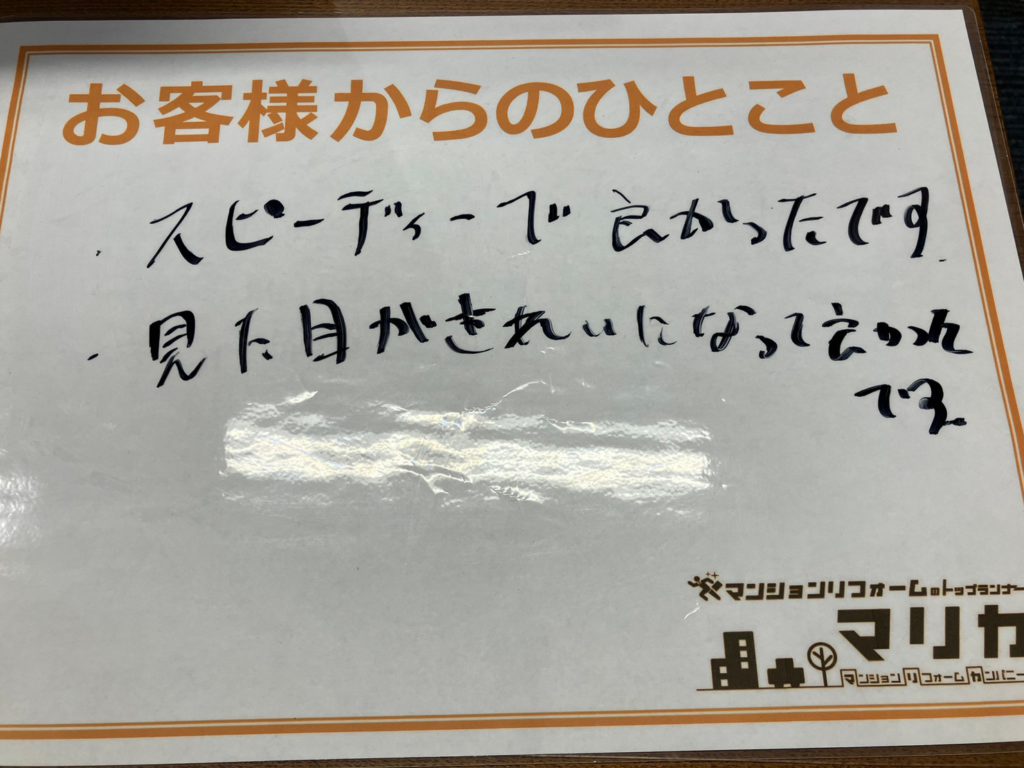 お客様からのひとこと
・スピーディーで良かったです.
・見た目がきれいになって良かった
です。
マンションリフォームのトップランナー
マリカ
マンションリフォームカンパニー